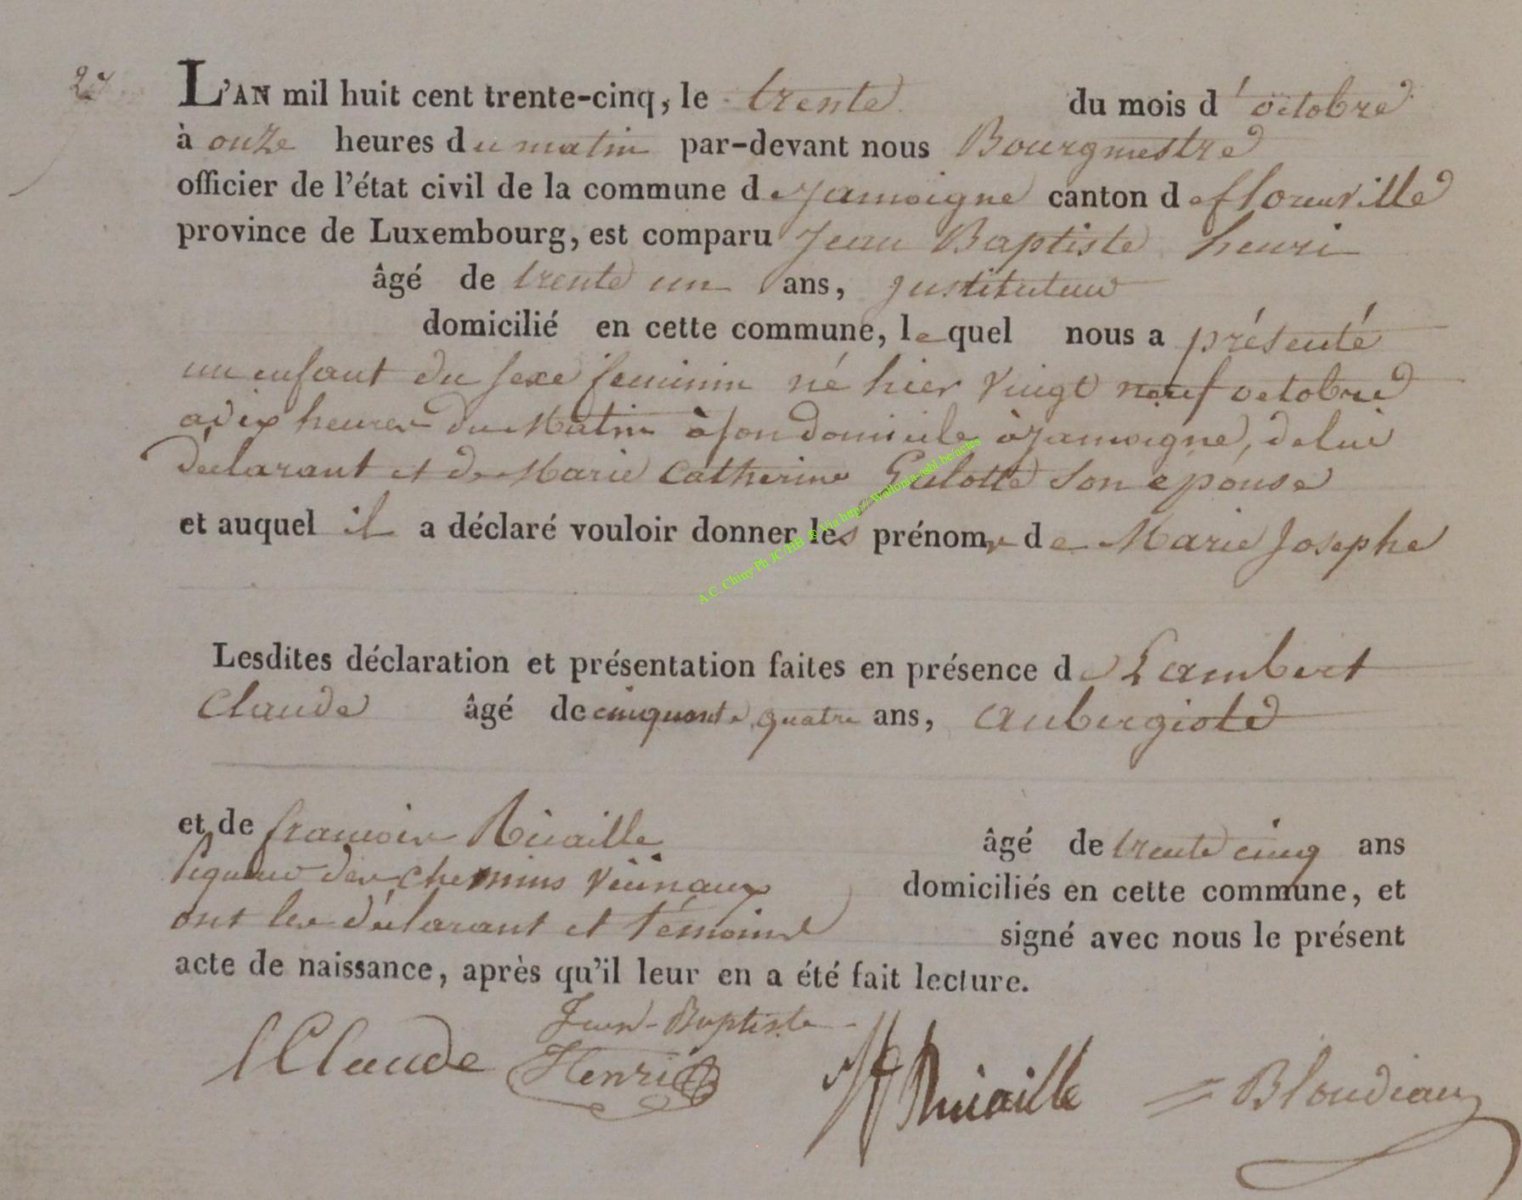 L'AN mil huit cent trente-cinq, le trente du mois d'octobre
à onze heures du matin par-devant nous Bourgmestre
officier de l'état civil de la commune de Jamoigne canton de florenville
province de Luxembourg, est comparu Jean Baptiste henri
âgé de trente un ans, Instituteur
domicilié en cette commune, lequel nous a présenté
un enfant du sexe feminin né hier vingt neuf octobre
a dix heures du Matin à son domicile à Jamoigne, de lui
déclarant et de Marie Catherine son epouse
et auquel il a déclaré vouloir donner les prénoms de Marie Josephe
A.C. Chiny Ph JC HB
Lesdites déclaration et présentation faites en présence de Lambert
Claude âgé de cinquante quatre ans, aubergiste
et de francois âgé de trente cinq ans
piqueur des chemins vicinaux domiciliés en cette commune, et
ont les déclarant et témoins signé avec nous le présent
acte de naissance, après qu'il leur en a été fait lecture.
Jean-Baptiste
l Claude Henri